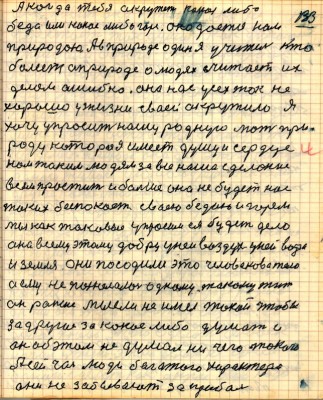 А когда тебя окрутит какая либо
беда или какое либо горе. она дается нам
природою. А в природе один я учитель кто
болеет а природе о людях считает их
делом ошибко. она нас усех так не
хорошо у жизни своей окрутило Я
хочу упросить нашу родную мать при-
роду которая имеет душу и сердце
нам таким людям за все наше сделание
всем простит и больше она не будет нас
таких беспокоет своею бедою и горем
мы как таковые упросим ея будет дело
она всему этому добру у ней воздух у ней вода
и земля они посодили это человека тело
а если не пожелалось одному такому жит
он раньше мысли не имел такой чтобы
за другие за какое либо думат а
он об этом не думал ни чего такого
Всей час люди богатого характера
они не забывают за прибыл
133